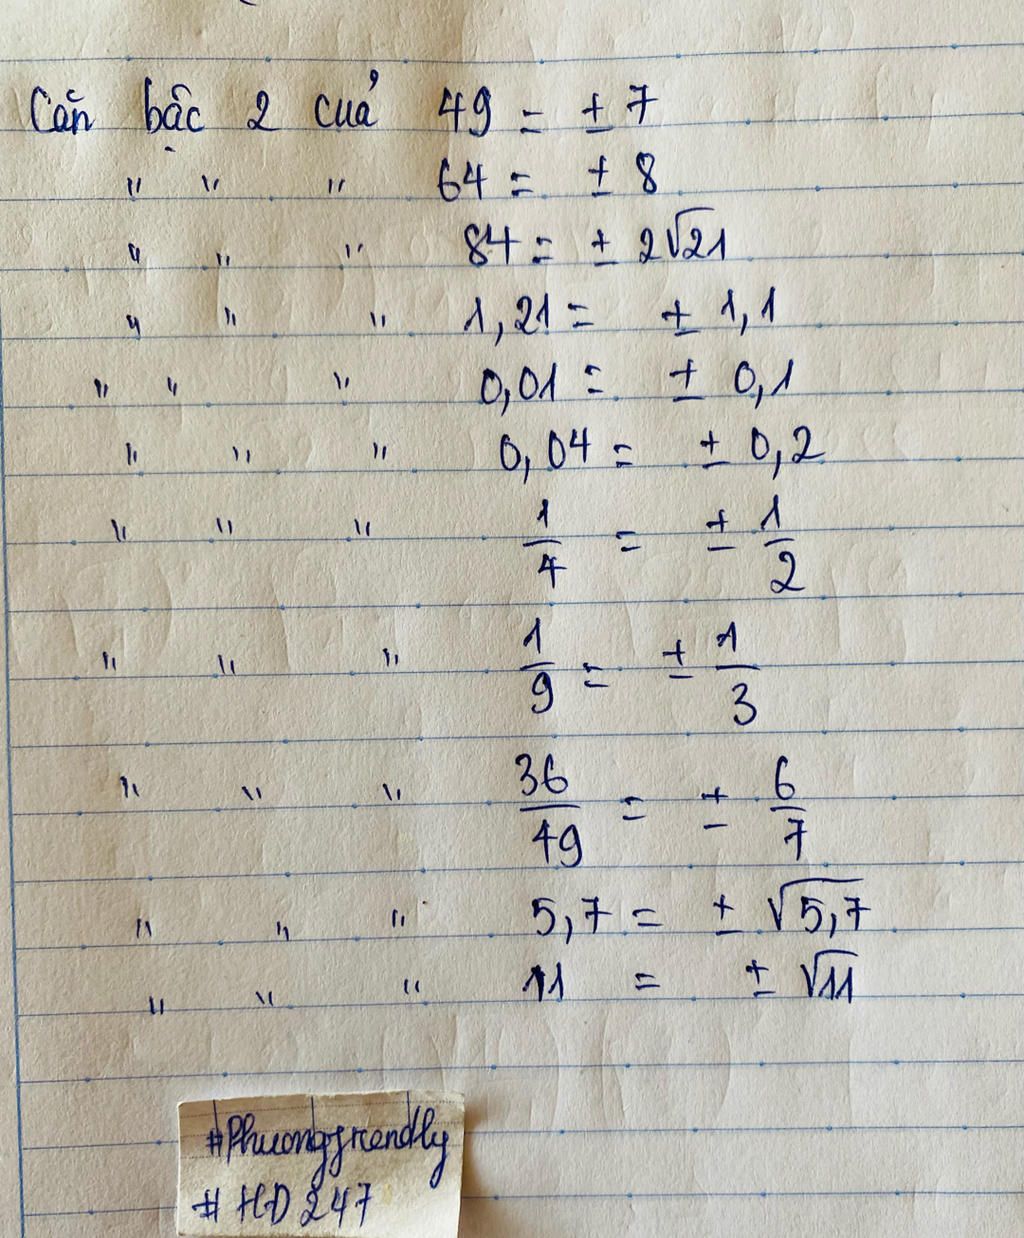 Căn bậc 2 của 49 = ± 7
" " " 64 = ± 8
" " " 84 = ± 2√21
" " " 1,21 = ± 1,1
" " " 0,01 = ± 0,1
" " " 0,04 = ± 0,2
" " " 1/4 = ± 1/2
" " " 1/9 = ± 1/3
" " " 36/49 = ± 6/7
" " " 5,7 = ± √5,7
" " " 11 = ± √11
#Phuongfriendly
# HD 247